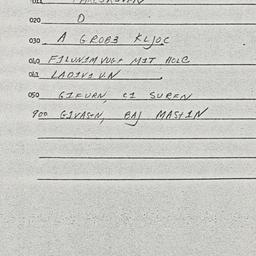 020 D
030 A GROB3 KLJOC
040 F1LUN1M VUGT M1T HOLC
041 LADIV1 U.N
050 G1FURN, C1 SUREN
900 G1VASEN, BAJ MASTIN